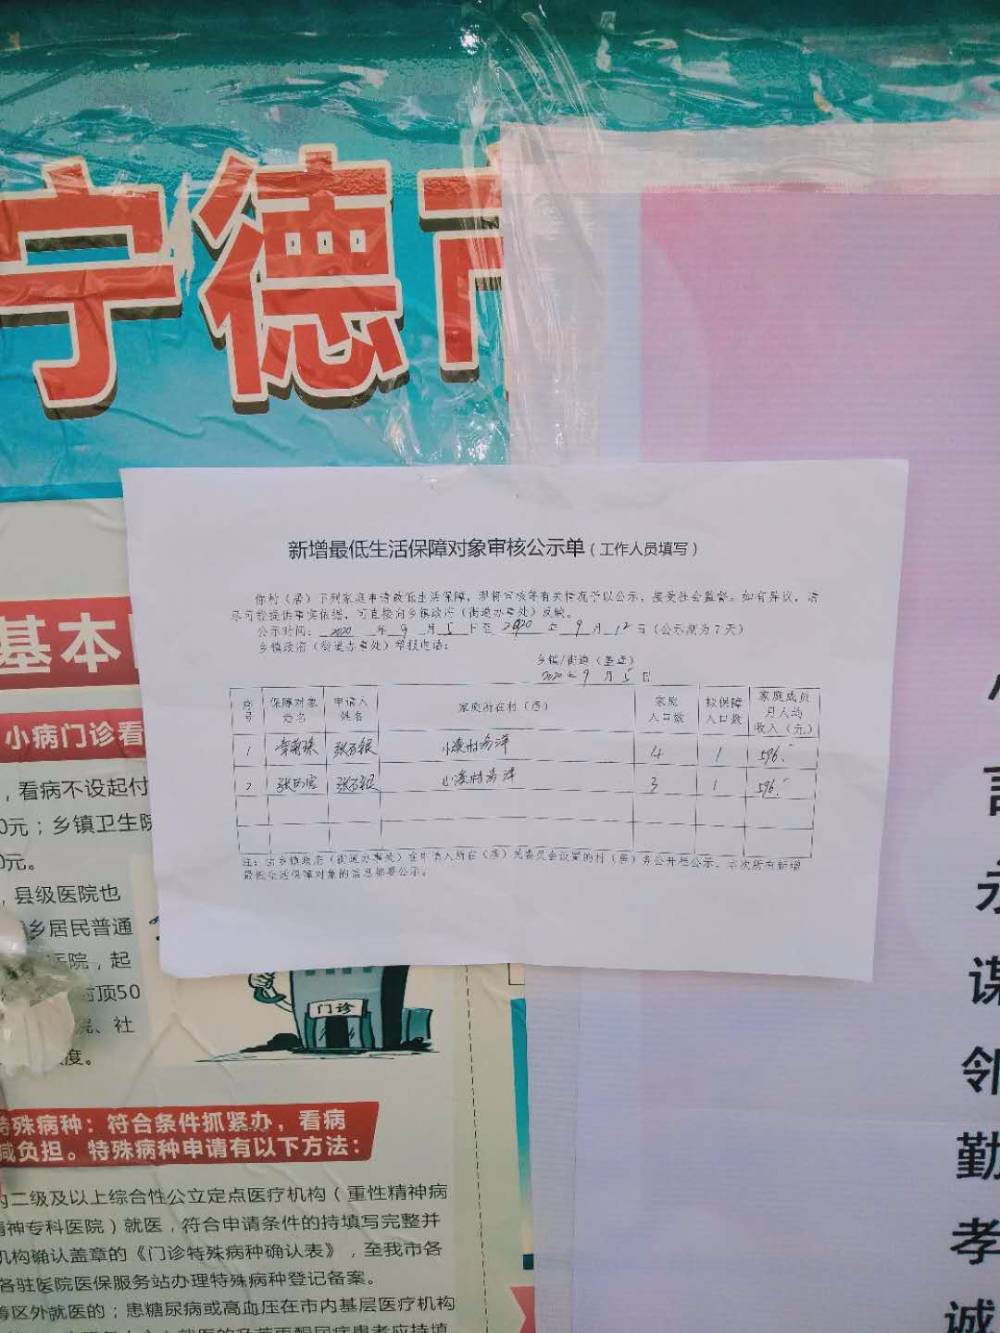 宁德市
新增最低生活保障对象审核公示单（工作人员填写）
你村（居）下列家庭申请最低生活保障，现将审核等有关情况予以公示，接受社会监督。如有异议，请
尽可能提供事实依据，可直接向乡镇政府（街道办事处）反映。
公示时间：2020年9月5日至2020年9月12日（公示期为7天）
乡镇政府（街道办事处）举报电话：
乡镇/街道（盖章）
2020年9月5日
序号 保障对象姓名 申请人姓名 家庭所在村（居） 家庭人口数 拟保障人口数 家庭成员月人均收入（元）
1 4 1 596.
2 3 1 596.
注：由乡镇政府（街道办事处）在申请人所在（居）民委员会设置的村（居）务公开栏公示，本次所有新增
最低生活保障对象的信息都要公示。
基本
小病门诊看
，看病不设起付
0元；乡镇卫生院
0元。
，县级医院也
乡居民普通
医院，起
封顶50
院、社
度。
门诊
特殊病种：符合条件抓紧办，看病
减负担。特殊病种申请有以下方法：
内二级及以上综合性公立定点医疗机构（重性精神病
精神专科医院）就医，符合申请条件的持填写完整并
机构确认盖章的《门诊特殊病种确认表》，至我市各
各驻医院医保服务站办理特殊病种登记备案。
筹区外就医的；患糖尿病或高血压在市内基层医疗机构
谋
邻
勤
孝
诚